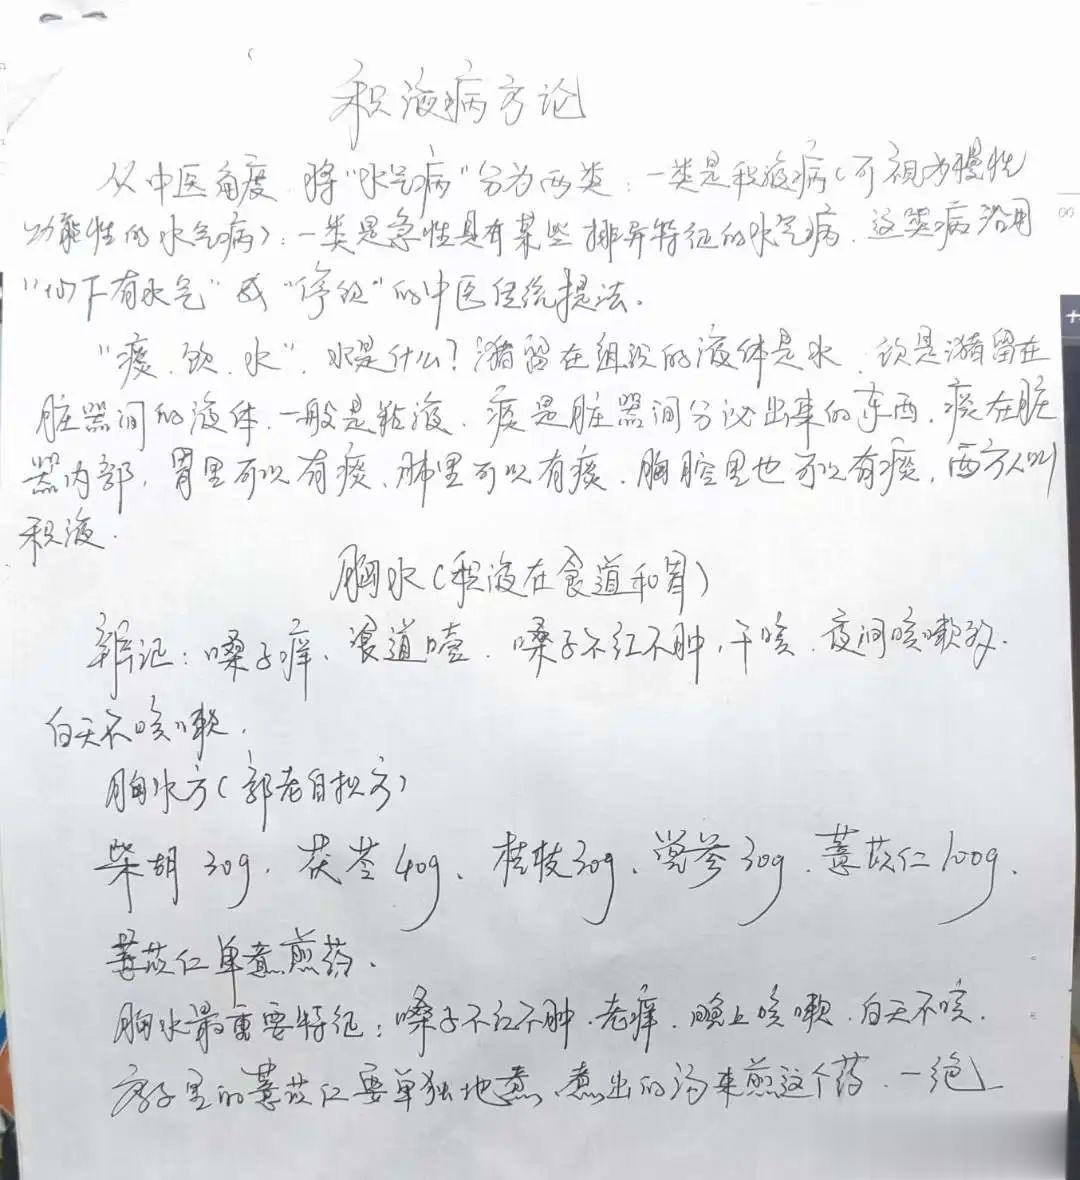 积液病方论
从中医角度,将“水气病”分为两类:一类是积液病(可视为慢性
功能性的水气病);一类是急性具有某些排异特征的水气病.这类病沿用
“心下有水气”或“停饮”的中医传统提法.
“痰、饮、水”,水是什么?潴留在组织的液体是水,饮是潴留在
脏器间的液体.一般是粘液.痰是脏器间分泌出来的东西,痰在脏
器内部,胃里可以有痰、肺里可以有痰、胸腔里也可以有痰,西方人叫
积液.
胸水(积液在食道和胃)
辨记:嗓子痒、食道噎、嗓子不红不肿,干咳、夜间咳嗽多.
白天不咳嗽.
胸水方(郭老自拟方)
柴胡30g、茯苓40g、桂枝30g、党参30g、薏苡仁100g、
薏苡仁单煮煎药.
胸水最重要特征:嗓子不红不肿、老痒、晚上咳嗽、白天不咳.
方子里的薏苡仁要单独地煮、煮出的汤来煎这个药、一绝